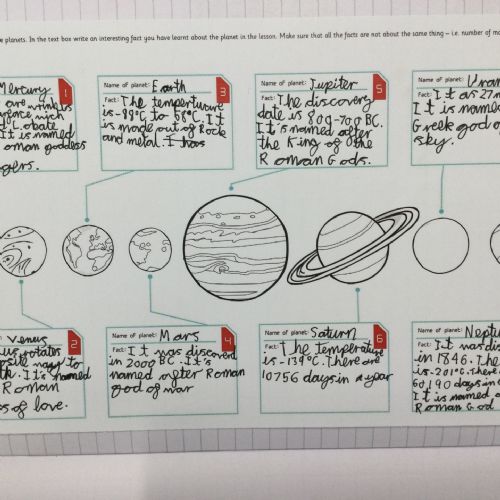 e planets. In the text box write an interesting fact you have learnt about the planet in the lesson. Make sure that all the facts are not about the same thing – i.e. number of mo
Mercury
1
are wrinkles
it is named
oman goddess
gers.
Name of planet: Earth
3
Fact: The temperture
is -89°C to 58°C. It
is made out of Rock
and metal. I has
Name of planet: Jupiter
5
Fact: The discovery
date is 800-700 BC.
It's named after
the King of the
Roman Gods.
Name of planet: Uran
Fact: It as 27 m
It is name
Greek god o
sky.
Venus
2
us rotates
to
th. It's named
Roman
ss of love.
Name of planet: Mars
4
Fact: It was discoverd
in 2000 BC. It's
named after Roman
god of war
Name of planet: Saturn
6
Fact: The temperature
is -139°C. There are
10756 days in a year
Name of planet: Neptu
Fact: It was dis
in 1846. The
is -201°C. There
60190 days in
It is named a
Roman God